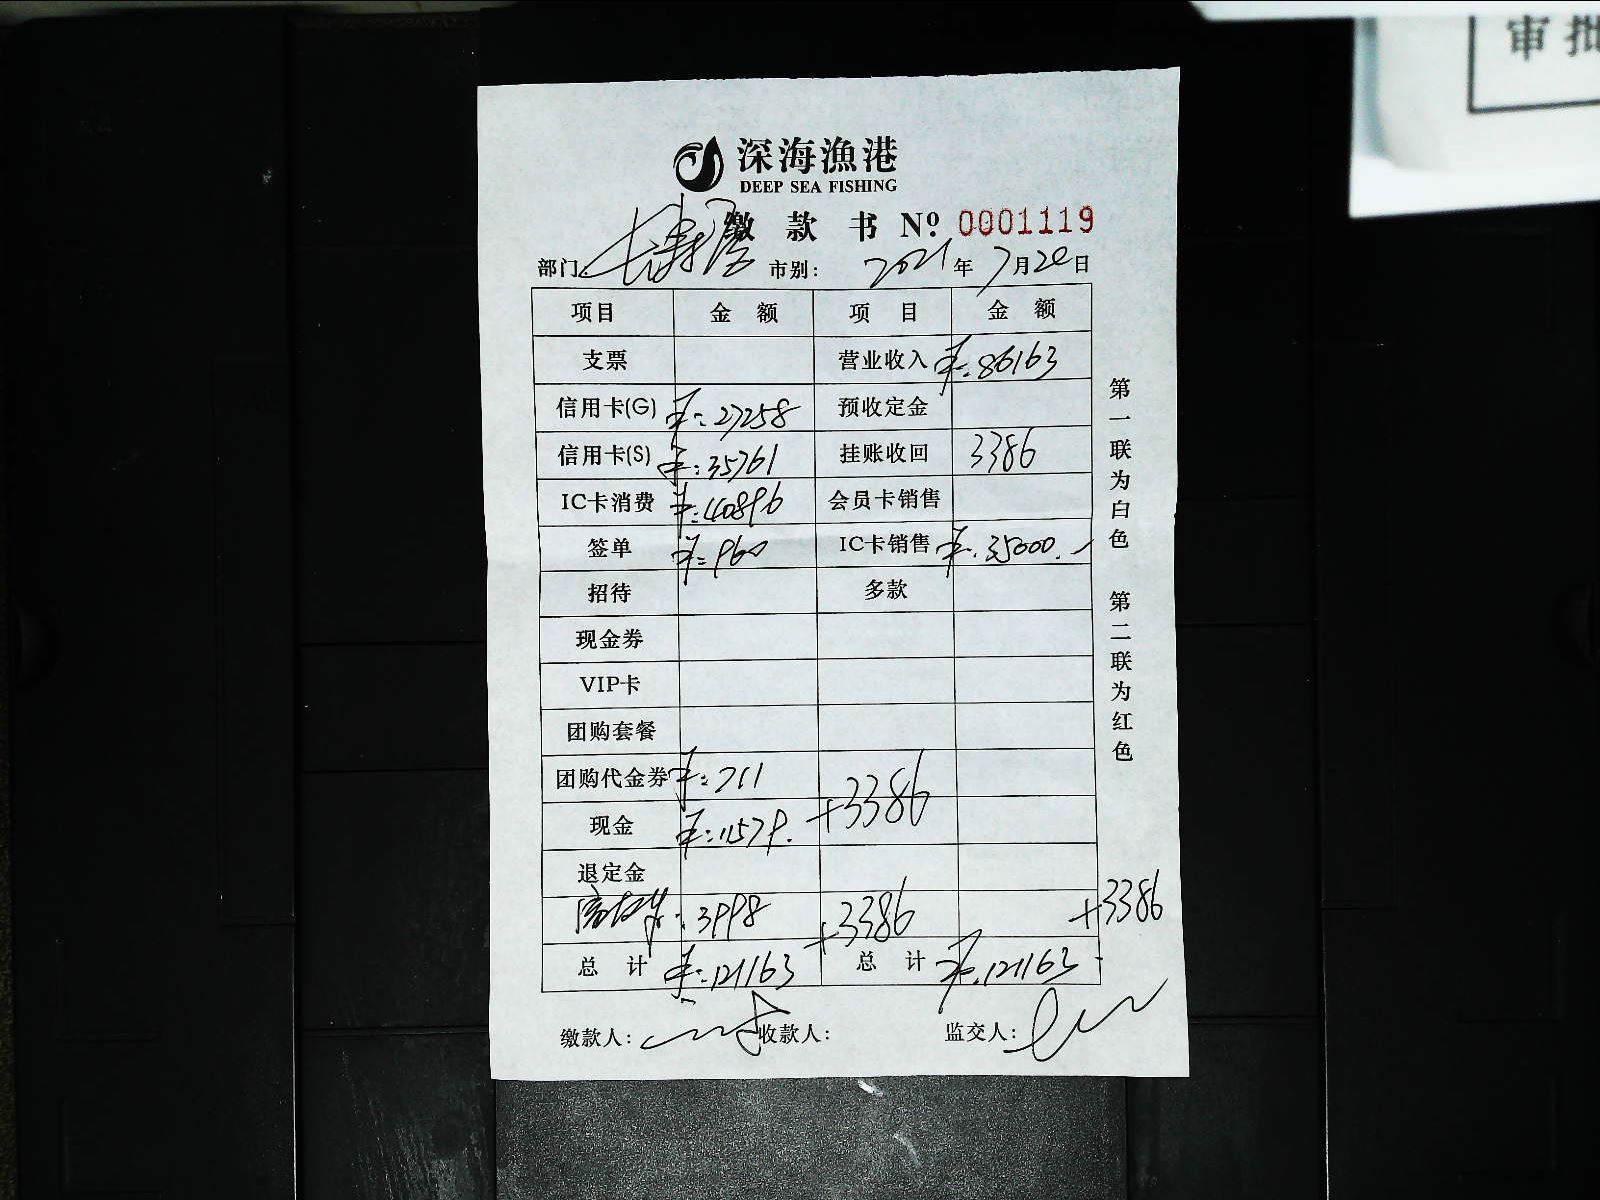 审批
深海漁港
DEEP SEA FISHING
缴款书 Nº. 0001119
部门: 市别: 2021年7月20日
项目 金额 项目 金额
支票 营业收入 ¥:86163
信用卡(G) ¥:27258 预收定金
信用卡(S) ¥:35761 挂账收回 3386
IC卡消费 ¥:40896 会员卡销售
签单 ¥:960 IC卡销售 ¥:35000.
招待 多款
现金券
VIP卡
团购套餐
团购代金券 ¥:711
现金 ¥:11579. +3386
退定金
:3998 +3386 +3386
总计 ¥:121163 总计 ¥:121163
缴款人: 收款人: 监交人:
第一联为白色 第二联为红色